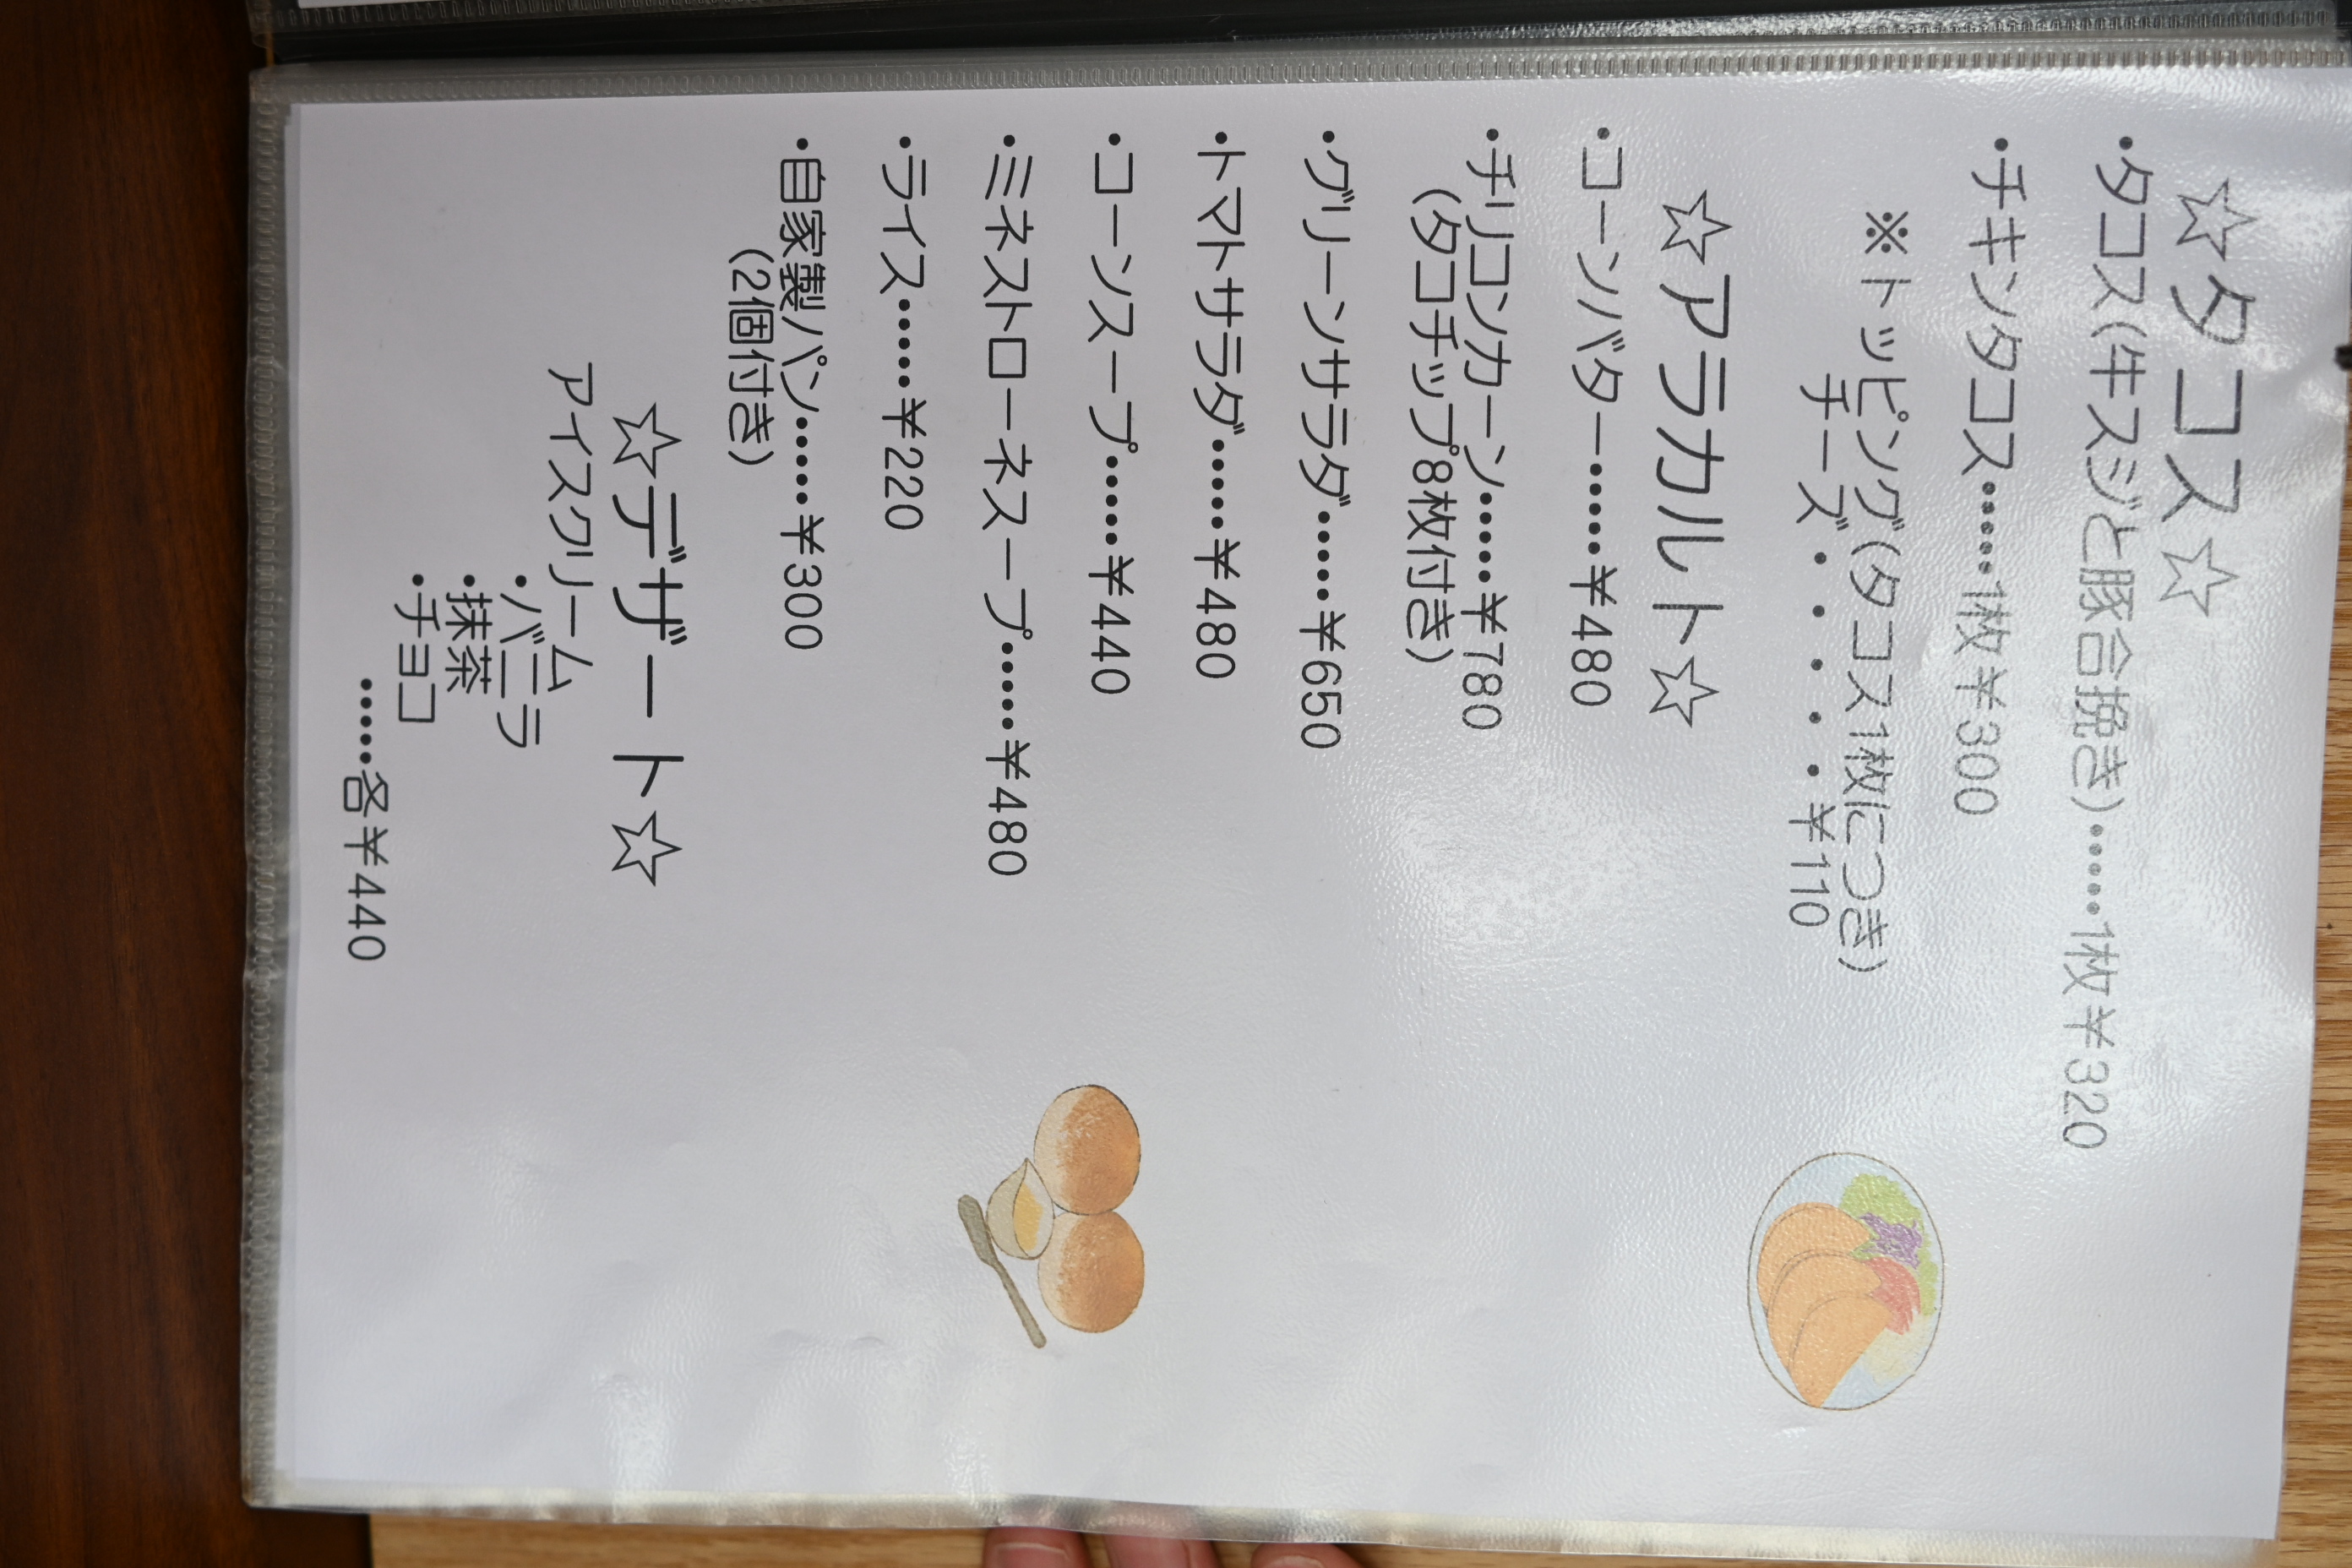 ☆タコス☆
・タコス(牛スジと豚合挽き)……1枚¥320
・チキンタコス……1枚¥300
※トッピング(タコス1枚につき)
チーズ・・・・・¥110
☆アラカルト☆
・コーンバター……¥480
・チリコンカーン……¥780
(タコチップ8枚付き)
・グリーンサラダ……¥650
・トマトサラダ……¥480
・コーンスープ……¥440
・ミネストローネスープ……¥480
・ライス……¥220
・自家製パン……¥300
(2個付き)
☆デザート☆
アイスクリーム
・バニラ
・抹茶
・チョコ
……各¥440